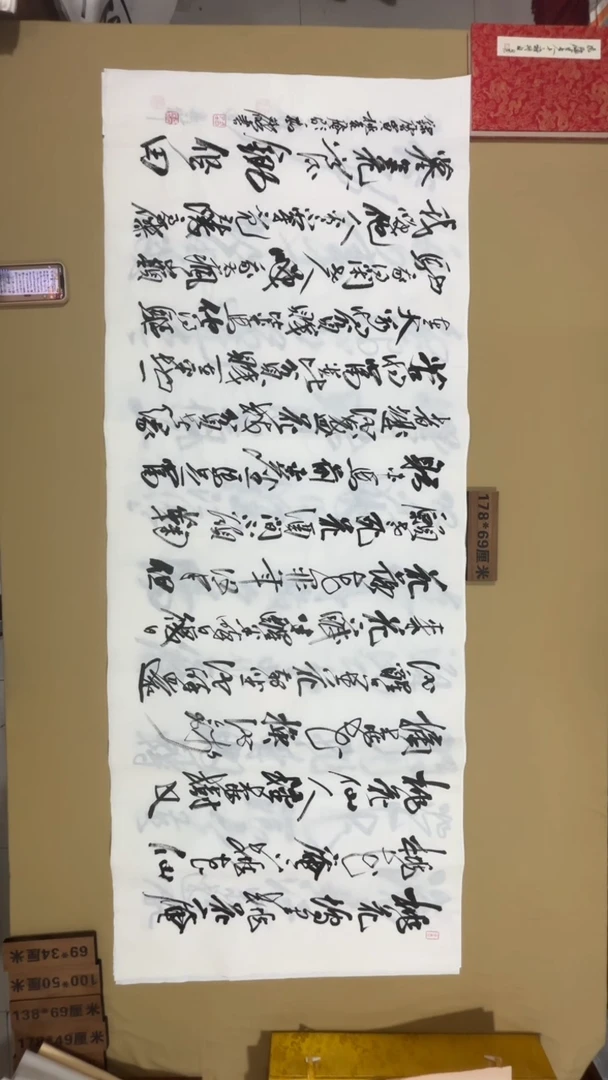 桃花塢裏桃花庵
桃花庵下桃花仙
桃花仙人種桃樹又
摘桃花換酒錢
酒醒只在花前坐酒醉還
來花下眠半醒半醉日復日
花落花開年復年但
願老死花酒間不願鞠
躬車馬前車塵馬足富
者趣酒盞花枝貧者緣
若將富貴比貧賤一在平地一
在天若將貧賤比車馬他得驅
馳我得閒人笑我忒瘋癲
我笑他人看不穿不見五陵豪
傑墓無花無酒鋤作田
178*69厘米
69*34厘米
100*50厘米
138*69厘米